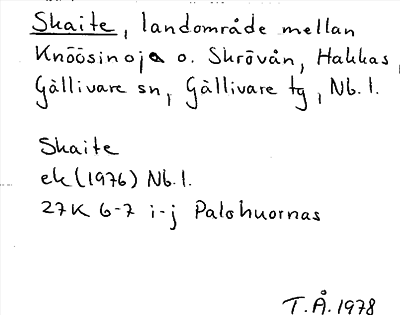 Skaite, landområde mellan
Knöösinoja o. Skrövån, Hakkas,
Gällivare sn, Gällivare tg, Nb.l.
Skaite
ek (1976) Nb.l.
27K 6-7 i-j Palohuornas
T.Å. 1978